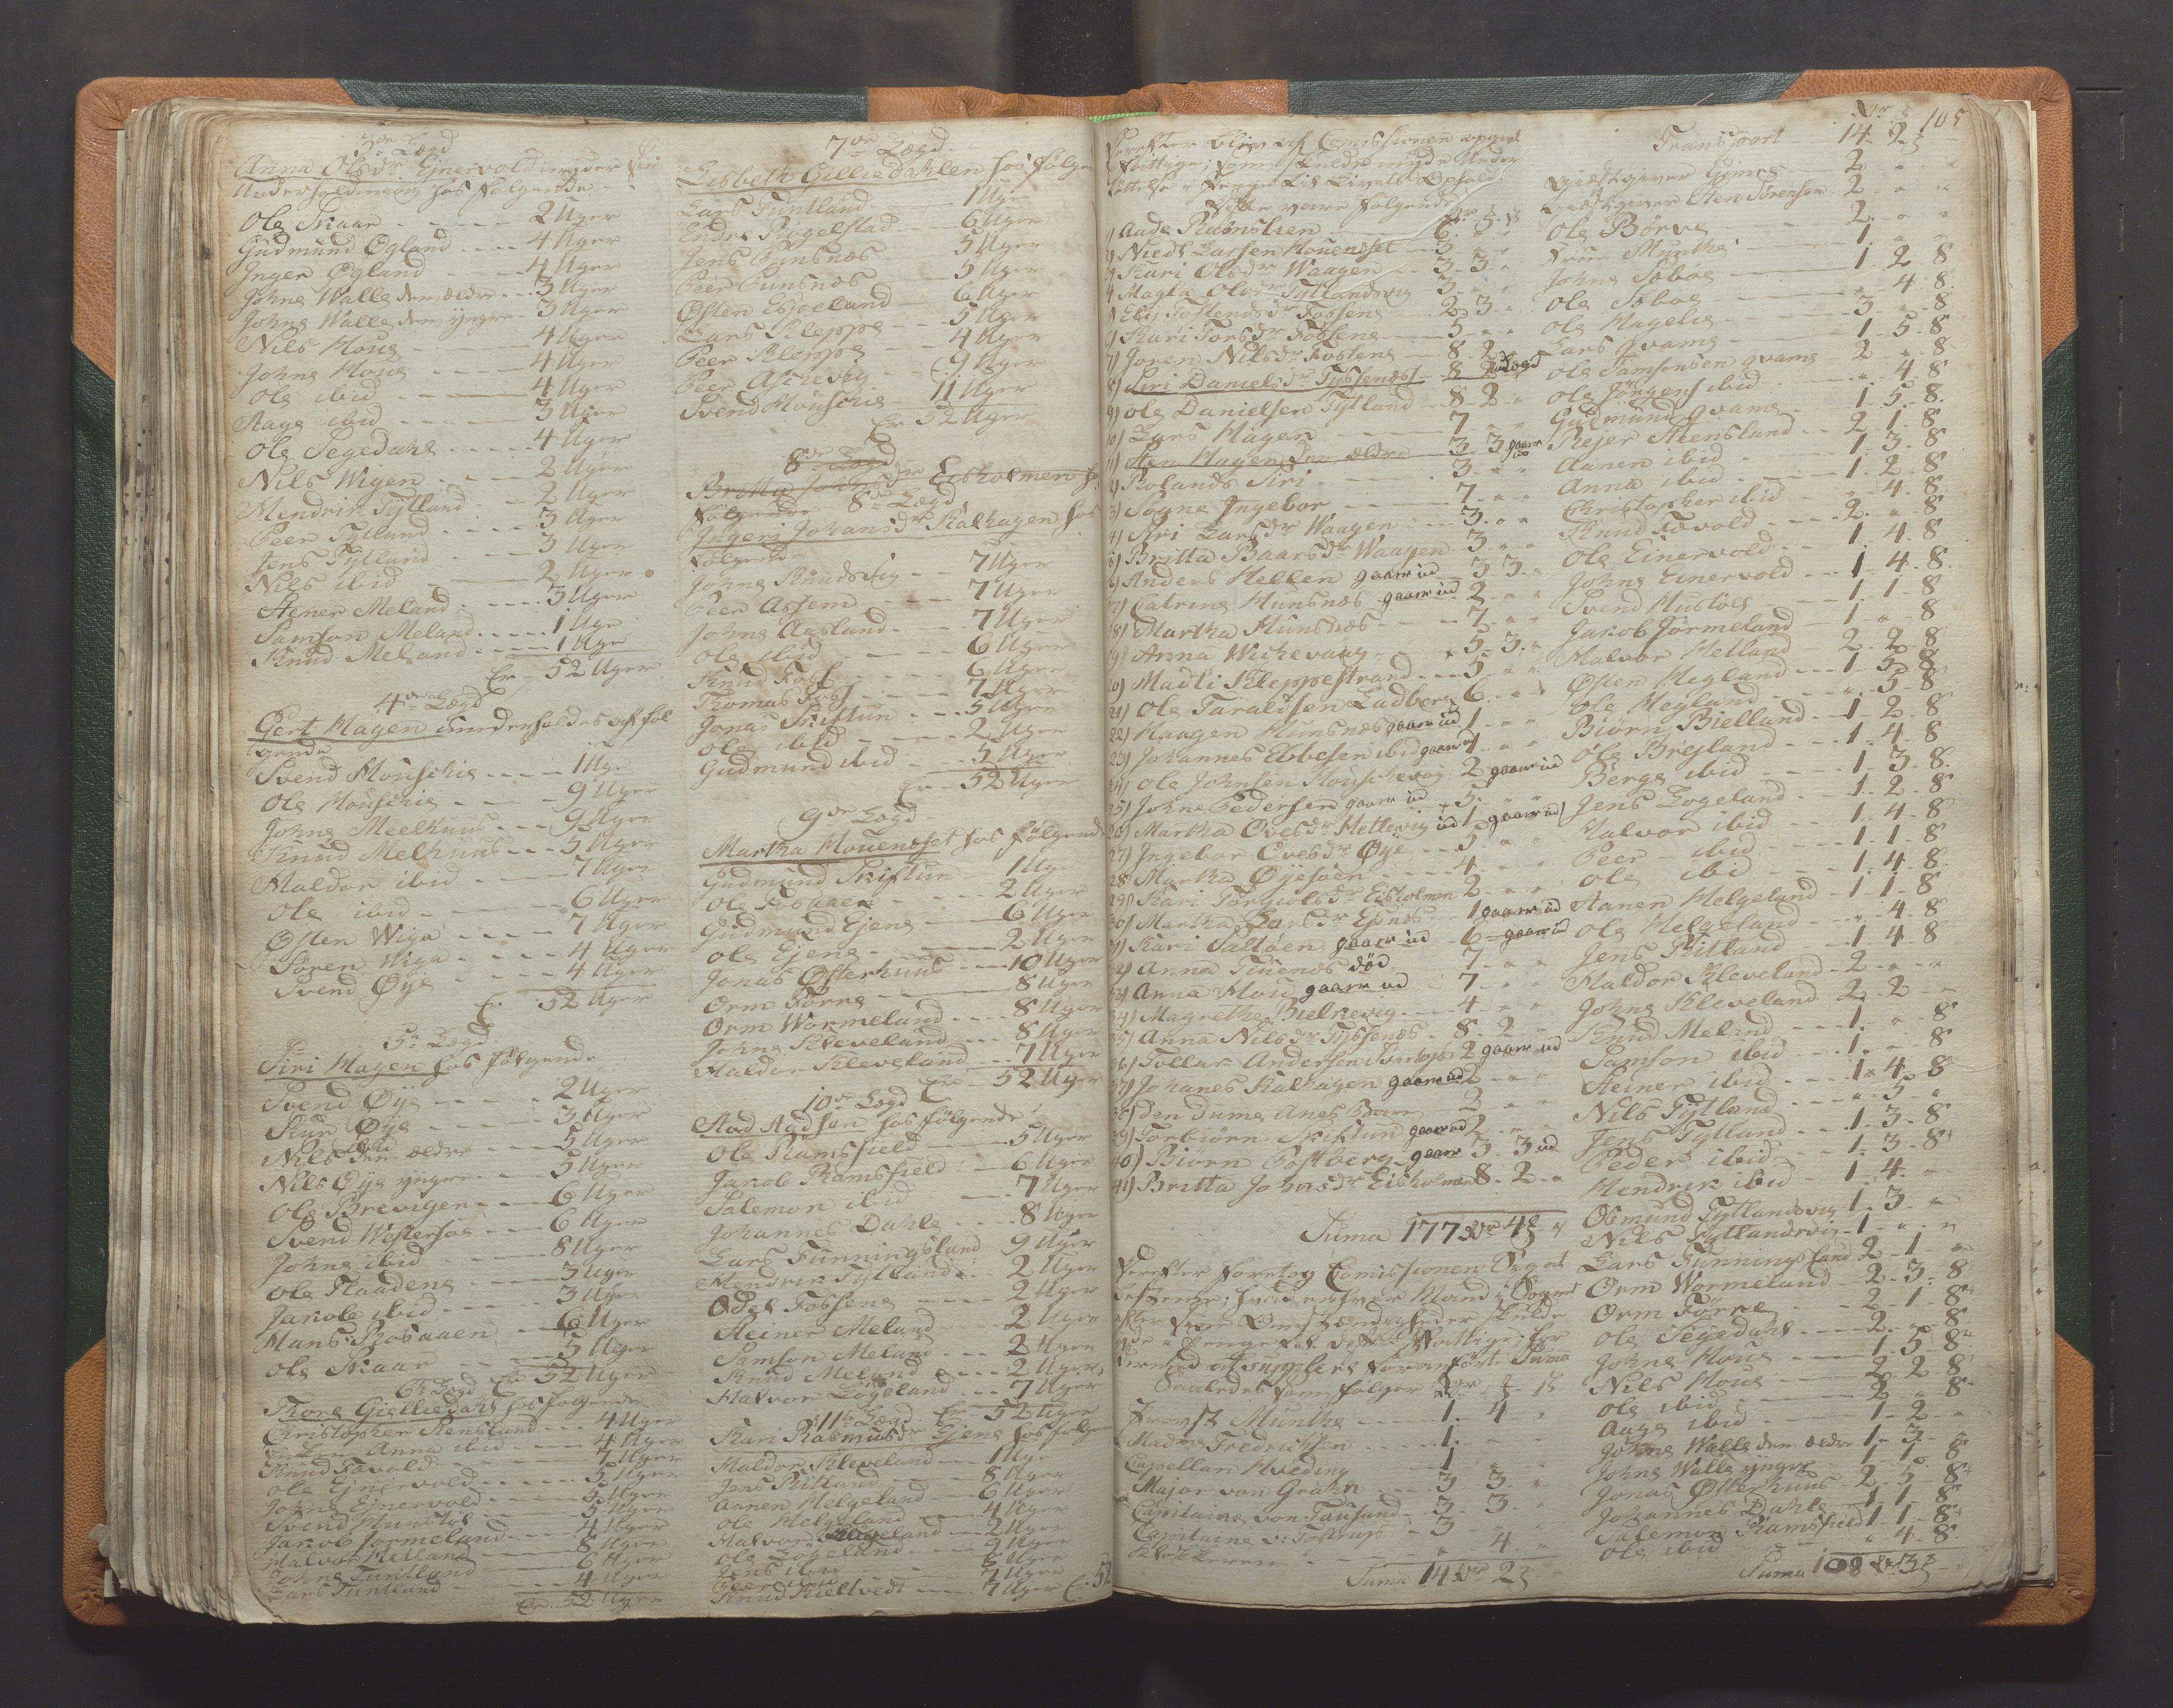 3die Lægd
Anna Olsdr Ejnervold nyder sin
Underholdning hos følgende
Ole Skaar - - - - 2 Uger
Gudmund Øgland - - - 4 Uger
Inger Øgland - - - 4 Uger
Johne Walle den ældre - - 3 Uger
Johne Walle den yngre - 3 Uger
Nils Houe - - - 4 Uger
Johne Houe - - - 4 Uger
Ole ibid - - - 4 Uger
Aage ibid - - - 3 Uger
Ole Segedahl - - - 4 Uger
Nils Wigen - - - 2 Uger
Hendrik Tytland - 2 Uger
Peer Tytland - - - 3 Uger
Jens Tytland - - - 3 Uger
Nils ibid - - - 2 Uger
Stener Meland - - - 3 Uger
Samson Meland - - - 1 Uge
Knud Meland - - - 1 Uge
Er - 52 Uger
4de Lægd
Gert Hagen underholdes af föl
gende
Svend Houschie - - - 1 Uge
Ole Houschie - - - 9 Uger
Johne Meelhuus - - - 9 Uger
Knud Melhuus - - - 5 Uger
Haldor ibid - - - 7 Uger
Ole ibid - - - 6 Uger
Østen Wiga - - - 7 Uger
Sören Wiga - - - 4 Uger
Svend Øye - - - 4 Uger
Er 52 Uger
5te Lægd
Siri Hagen hos følgende
Svend Øye - - - 2 Uger
Siur Øye - - - 3 Uger
Nils ibid den ældre - - 5 Uger
Nils Øye yngre - - 5 Uger
Ole Brevigen - - 6 Uger
Svend Westersøe - - 6 Uger
Johne ibid - - - 8 Uger
Ole Staadene - - - 3 Uger
Jakob ibid - - - 3 Uger
Hans Rosaaen - - 6 Uger
Ole Skaar - - - 5 Uger
Er 52 Uger
6te Lægd
Thore Gielliedahl hos følgende
Christopher Stensland - - 4 Uger
Enken Anna ibid - - 4 Uger
Knud Tævold - - - 7 Uger
Ole Ejnervold - - - 5 Uger
Johne Ejnervold - - - 5 Uger
Svend Hustøl - - - 5 Uger
Jakob Jørmeland - - - 4 Uger
Halvor Helland - - - 8 Uger
Johne Tuntland - - 6 Uger
Lars Tuntland - - - 4 Uger
Er 52 Uger
7de Lægd
Lisbeth Gilliedahlen hos følgen
Lars Tuntland - 1 Uge
Endre Bogelstad - - 6 Uger
Jens Hunsnæs - - 5 Uger
Peer Hunsnæs - - 5 Uger
Østen Espeland - - 6 Uger
Lars Kleppe - - 5 Uger
Peer Kleppe - - 4 Uger
Peer Aschevig - - 9 Uger
Svend Houschie - 11 Uger
Er 52 Uger
8de Lægd
Britta Johnsdr Eisholmen ho
følgende 8de Lægd
Ingeri Johansdr Kalhagen hos
følgende
Johne Knudsvig - - 7 Uger
Peer Assem - - - 7 Uger
Johne Aasland - - 7 Uger
Ole ibid - - - 6 Uger
Knud Foss - - - 6 Uger
Thomas Foss - - - 7 Uger
Jonas Skiftun - - 5 Uger
Ole ibid - - - 2 Uger
Gudmund ibid - - 5 Uger
Er - 52 Uger
9de Lægd
Martha Houenæset hos følgende
Gudmund Skiftun - 1 Uge
Ole Rosaaen - - - 2 Uger
Gudmund Ejene - - 6 Uger
Ole Ejene - - - 2 Uger
Jonas Østerhuus - - 10 Uger
Orm Førre - - - 8 Uger
Orm Wormeland - - 8 Uger
Johne Kleveland - - 8 Uger
Haldor Kleveland - 7 Uger
Er - 52 Uger
10de Lægd
Aad Aadsen hos følgende
Ole Ramsfield - 5 Uger
Jakob Ramsfield - 6 Uger
Salemon ibid - 7 Uger
Johannes Dahle - - - 8 Uger
Lars Funningsland 9 Uger
Hendrik Tytland - - - 2 Uger
Odel Fossene - - - 2 Uger
Steiner Meland - - 2 Uger
Samson Meland - - - 2 Uger
Knud Meland - - - 2 Uger
Halvor Løgeland - - - 7 Uger
Er 52 Uger
11te Lægd
Kari Rasmusdr Ejene hos følgen
Haldor Kleveland - - 1 Uge
Jens Ritland - - - 8 Uger
Aanen Helgeland - - 6 Uger
Ole Helgeland - - 4 Uger
Halvor Løgeland - - 2 Uger
Ole Løgeland - - - 9 Uger
Jens ibid
Peer ibid - - - 7 Uger
Knud Kieltvedt - - 7 Uger Er 52
105
Derefter blev af Comissionen opgivet
Fattige, som skulde nyde Under
støttelse i Penge til Livets Ophold
Disse vare følgende
1) Aade Ruønslien - - 6 " "
2) Niels Larsen Houenæset - 3 " "
3) Kari Olsdr Waagen - 3 - 3 "
4 Magla Olsdr Tytlandsvig - 3 " "
5 Eli Tostensdr Fossene - 2 3 "
6) Kari Torsdr Fossene - - 5 " "
7) Joren Nilsdr Fossene - 8 - 2 "
8) Siri Danielsdr Tyssenæs - 8 2 Lægd
9) Ole Danielsen Tytland - 8 - 2 "
10) Lars Hagen - - - 7 " "
11) Sten Hagen den ældre - 3 3 gaaer
12) Rolands Siri - - - 3 " "
13) Sogne Ingebor - - - 7 " "
14) Ari Larsdr Waagen - - 3 " "
15) Britta Baarsdr Waagen - 3 " "
16) Anders Hellen gaaer ud 3 3 "
17) Catrine Hunsnæs gaaer ud 2 " "
18) Martha Hunsnæs - - - 7 " "
19) Anna Wichevaag - - 5 3 "
20) Madli Kleppestrand - - 5 " "
21) Ole Taraldsen Ladberg 6 " "
22) Haagen Hunsnæs gaaer ud 1 " "
23) Johannes Ebbesen ibid gaaer ud 1 " "
24) Ole Johnsen Houschevog 2 gaaer ud
25) Johne Pedersen gaaer ud 5 " "
26) Martha Ovesdr Hettevig ud 1 gaaer ud
27) Ingebor Ovesdr Øye - - 5 " "
28 Martha Øyesøen - - - 4 " "
29) Kari Torgiolsdr Eisholmen 2 " "
30) Martha Larsdr Ejnæs - 1 gaaer ud
31) Kari Saltøen gaaer ud - 6 gaaer ud
32) Anna Tuenæs død 7 " "
33) Anna Houe gaaer ud - 7 " "
34) Magrethe Bielkevig - - 4 " "
35) Anna Nilsdr Tyssenæs - 8 2 "
36) Tollak Andersen 2 gaaer ud
37) Johanes Kalhagen gaaer ud 2 " "
38) den Dume Anes Barn 2 " "
39) Torbiørn Skiftun gaaer ud 2 " "
40) Biørn Fostberg gaaer 3 3 ud
41) Britta Johnsdr Eisholmen 8 - 2 "
Suma 177 Rdr 4
Derefter foretog Comissionen sig at
bestemme, hvad enhver Mand i Sognet
efter sine Omstændigheder skulde
yde i Penge til disse Fattige for
dermed at supplere foranførte Suma
Saaledes som følger
Provst Munthe - - - 1 - 4 "
Madme Fredrichsen - - 1 -
Capellan Hveding - 1 " "
Major von Grahn - - 3 3 "
Capitaine von Tausand - 3 - 3 "
Capitaine v: Tostrup - 3 - " "
Klokkeren - - - " 4 "
Suma 14 Rdr 2
Transport - 14 - 2
Giæstgiver Gimre - - 2 " "
Giæstgiver Sten Sørensen - 2 " "
Ole Børve - - - 2 " "
Frue Munthe - - 1 " "
Johne Sæboe - - 1 2 8
Ole Sæboe - - - " 4 8
Ole Hagelie - - - 3 " 8
Lars Qvame - - - 1 5 8
Ole Samsonsen Qvame - 2 " 8
Ole Jørgens ibid - - " 4 8
Gudmund Qvame - 1 5 8
Rejer Stensland - - 2 1 8
Aanen ibid - - - 1 3 8
Anna ibid - - - 1 2 8
Christopher ibid - - " 4 8
Knud Tævold - - - 2 " 8
Ole Einervold - - - 1 4 8
Johne Einervold - - 1 4 8
Svend Hustøel - - 1 1 8
Jakob Jørmeland - - 1 " 8
Halvor Helland - - 2 2 8
Østen Hegland - - - 1 5 8
Ole Hegland - - - " 5 8
Biørn Bielland - - - 1 2 8
Ole Brejland - - - 1 4 8
Berge ibid - - - 1 3 8
Jens Løgeland - - - 1 2 8
Halvor ibid - - - 1 4 8
Peer - ibid - - - 1 1 8
Ole ibid - - - 1 4 8
Aanen Helgeland - 1 1 8
Ole Helgeland - - - " 4 8
Jens Ritland - - - 1 4 8
Haldor Kleveland - 2 " "
Johne Kleveland - 2 2 "
Knud Meland - - - 1 " 8
Samson ibid - - - 1 " 8
Steiner ibid - - - 1 4 8
Nils Tytland - - - " 5 "
Jens Tytland - - - 1 3 8
Peder ibid - - - 1 3 8
Hendrik ibid - 1 4 "
Obmund Tytlandsvig - 1 3 "
Nils Tytlandsvig - 1 " "
Lars Funningsland 2 1 "
Orm Wormeland - 2 3 8
Orm Førre - - - 2 1 8
Ole Segedahl - - - 2 " 8
Johne Houe - - - 1 5 8
Nils Houe - - - 2 2 8
Ole ibid - - - 2 " 8
Aage ibid - - - 1 2 "
Johne Walle den ældre 1 3 "
Johne Walle yngre 1 1 8
Jonas Østerhuus - 2 5 8
Johannes Dahle - - 1 1 8
Salemon Ramsfield 1 1 8
Ole ibid - - - " 4 8
Suma 108 Rdr 3